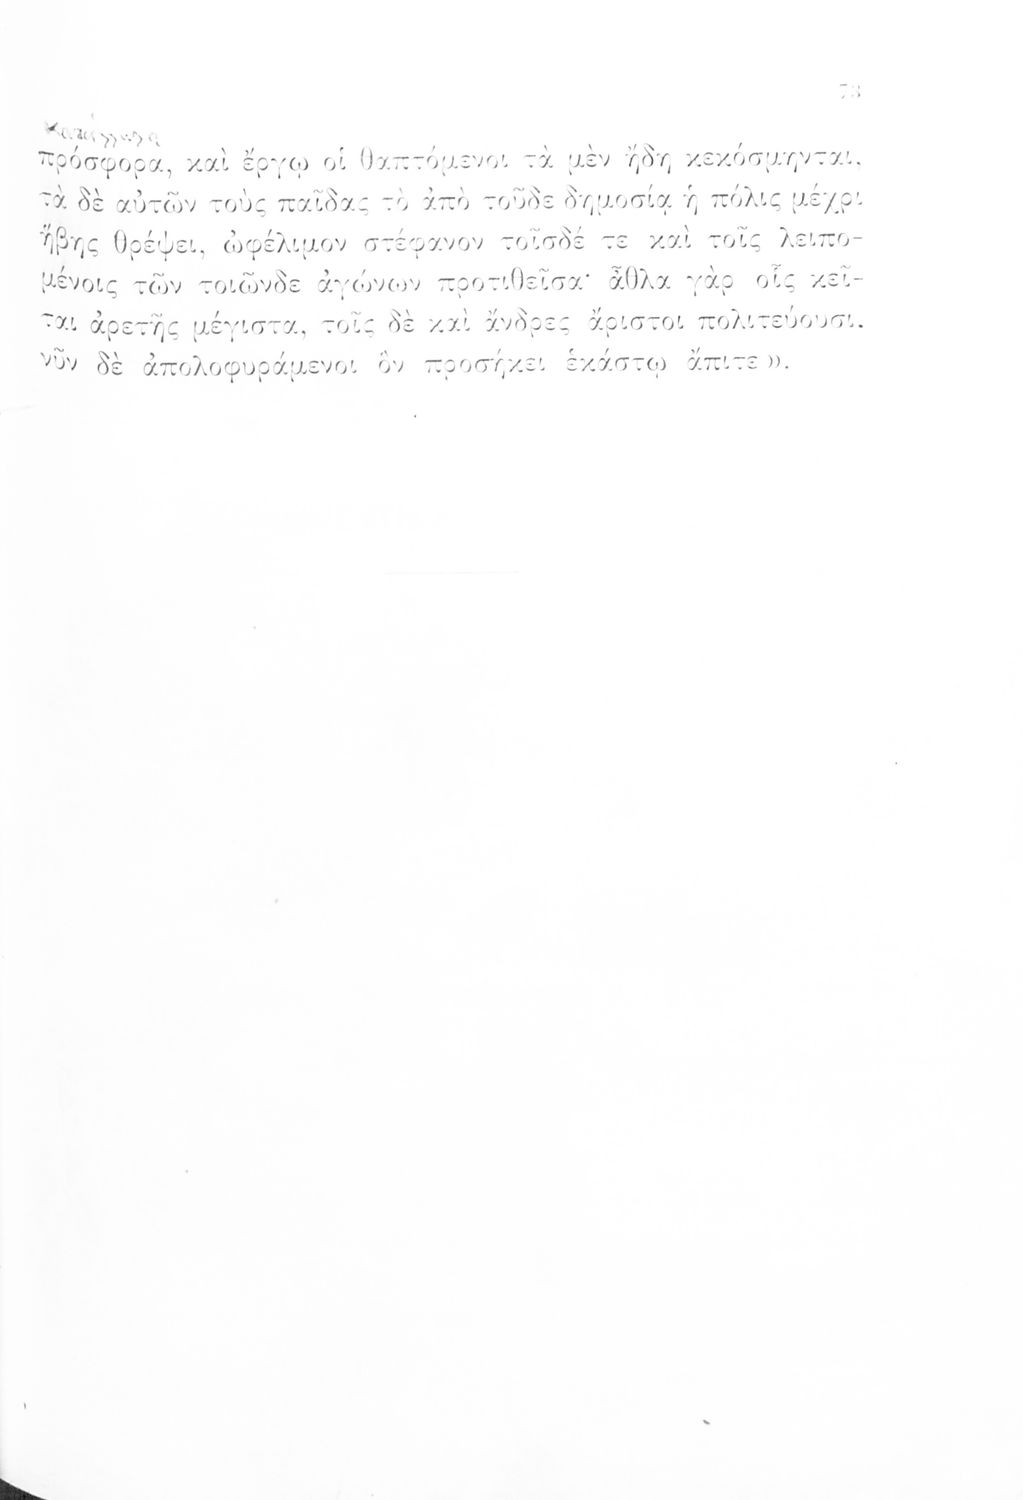 73
κατάλληλα
πρόσφορα, καὶ ἔργῳ οἱ θαπτόμενοι τὰ μὲν ἤδη κεκόσμηνται,
τὰ δὲ αὐτῶν τοὺς παῖδας τὸ ἀπὸ τοῦδε δημοσίᾳ ἡ πόλις μέχρι
ἥβης θρέψει, ὠφέλιμον στέφανον τοῖσδέ τε καὶ τοῖς λειπο-
μένοις τῶν τοιῶνδε ἀγώνων προτιθεῖσα· ἆθλα γὰρ οἷς κεῖ-
ται ἀρετῆς μέγιστα, τοῖς δὲ καὶ ἄνδρες ἄριστοι πολιτεύουσι.
νῦν δὲ ἀπολοφυράμενοι ὃν προσήκει ἑκάστῳ ἄπιτε».